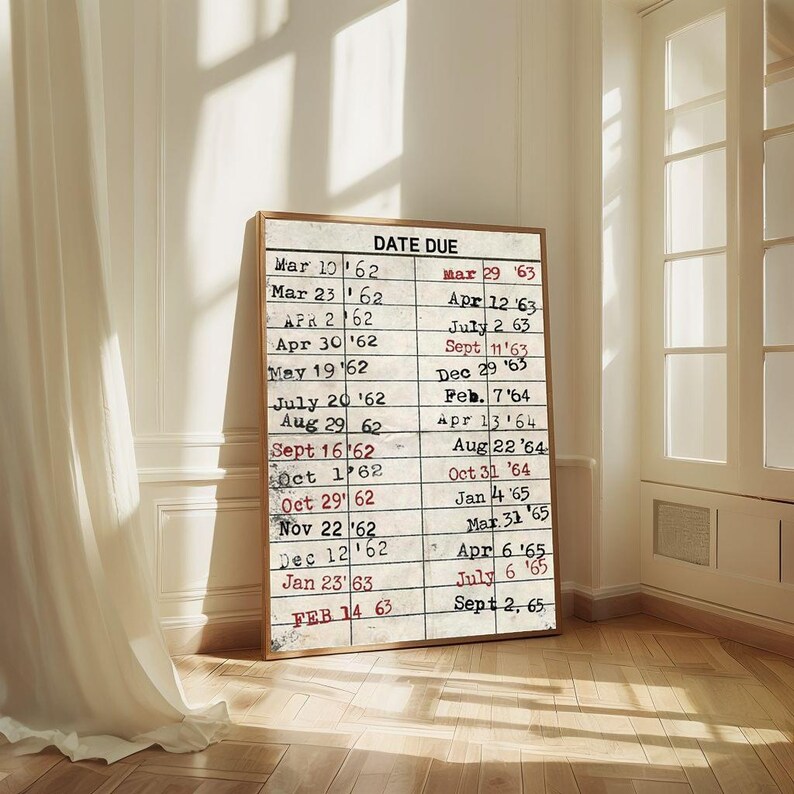 DATE DUE
Mar 10 '62
Mar 23 '62
APR 2 '62
Apr 30 '62
May 19 '62
July 20 '62
Aug 29 62
Sept 16 '62
Oct 1 '62
Oct 29' 62
Nov 22 '62
Dec 12 '62
Jan 23' 63
FEB 14 63
Mar 29 '63
Apr 12 '63
July 2 63
Sept 11 '63
Dec 29 '63
Feb. 7 '64
Apr 13 '64
Aug 22 '64
Oct 31 '64
Jan 4 '65
Mar. 31 '65
Apr 6 '65
July 6 '65
Sept 2, 65